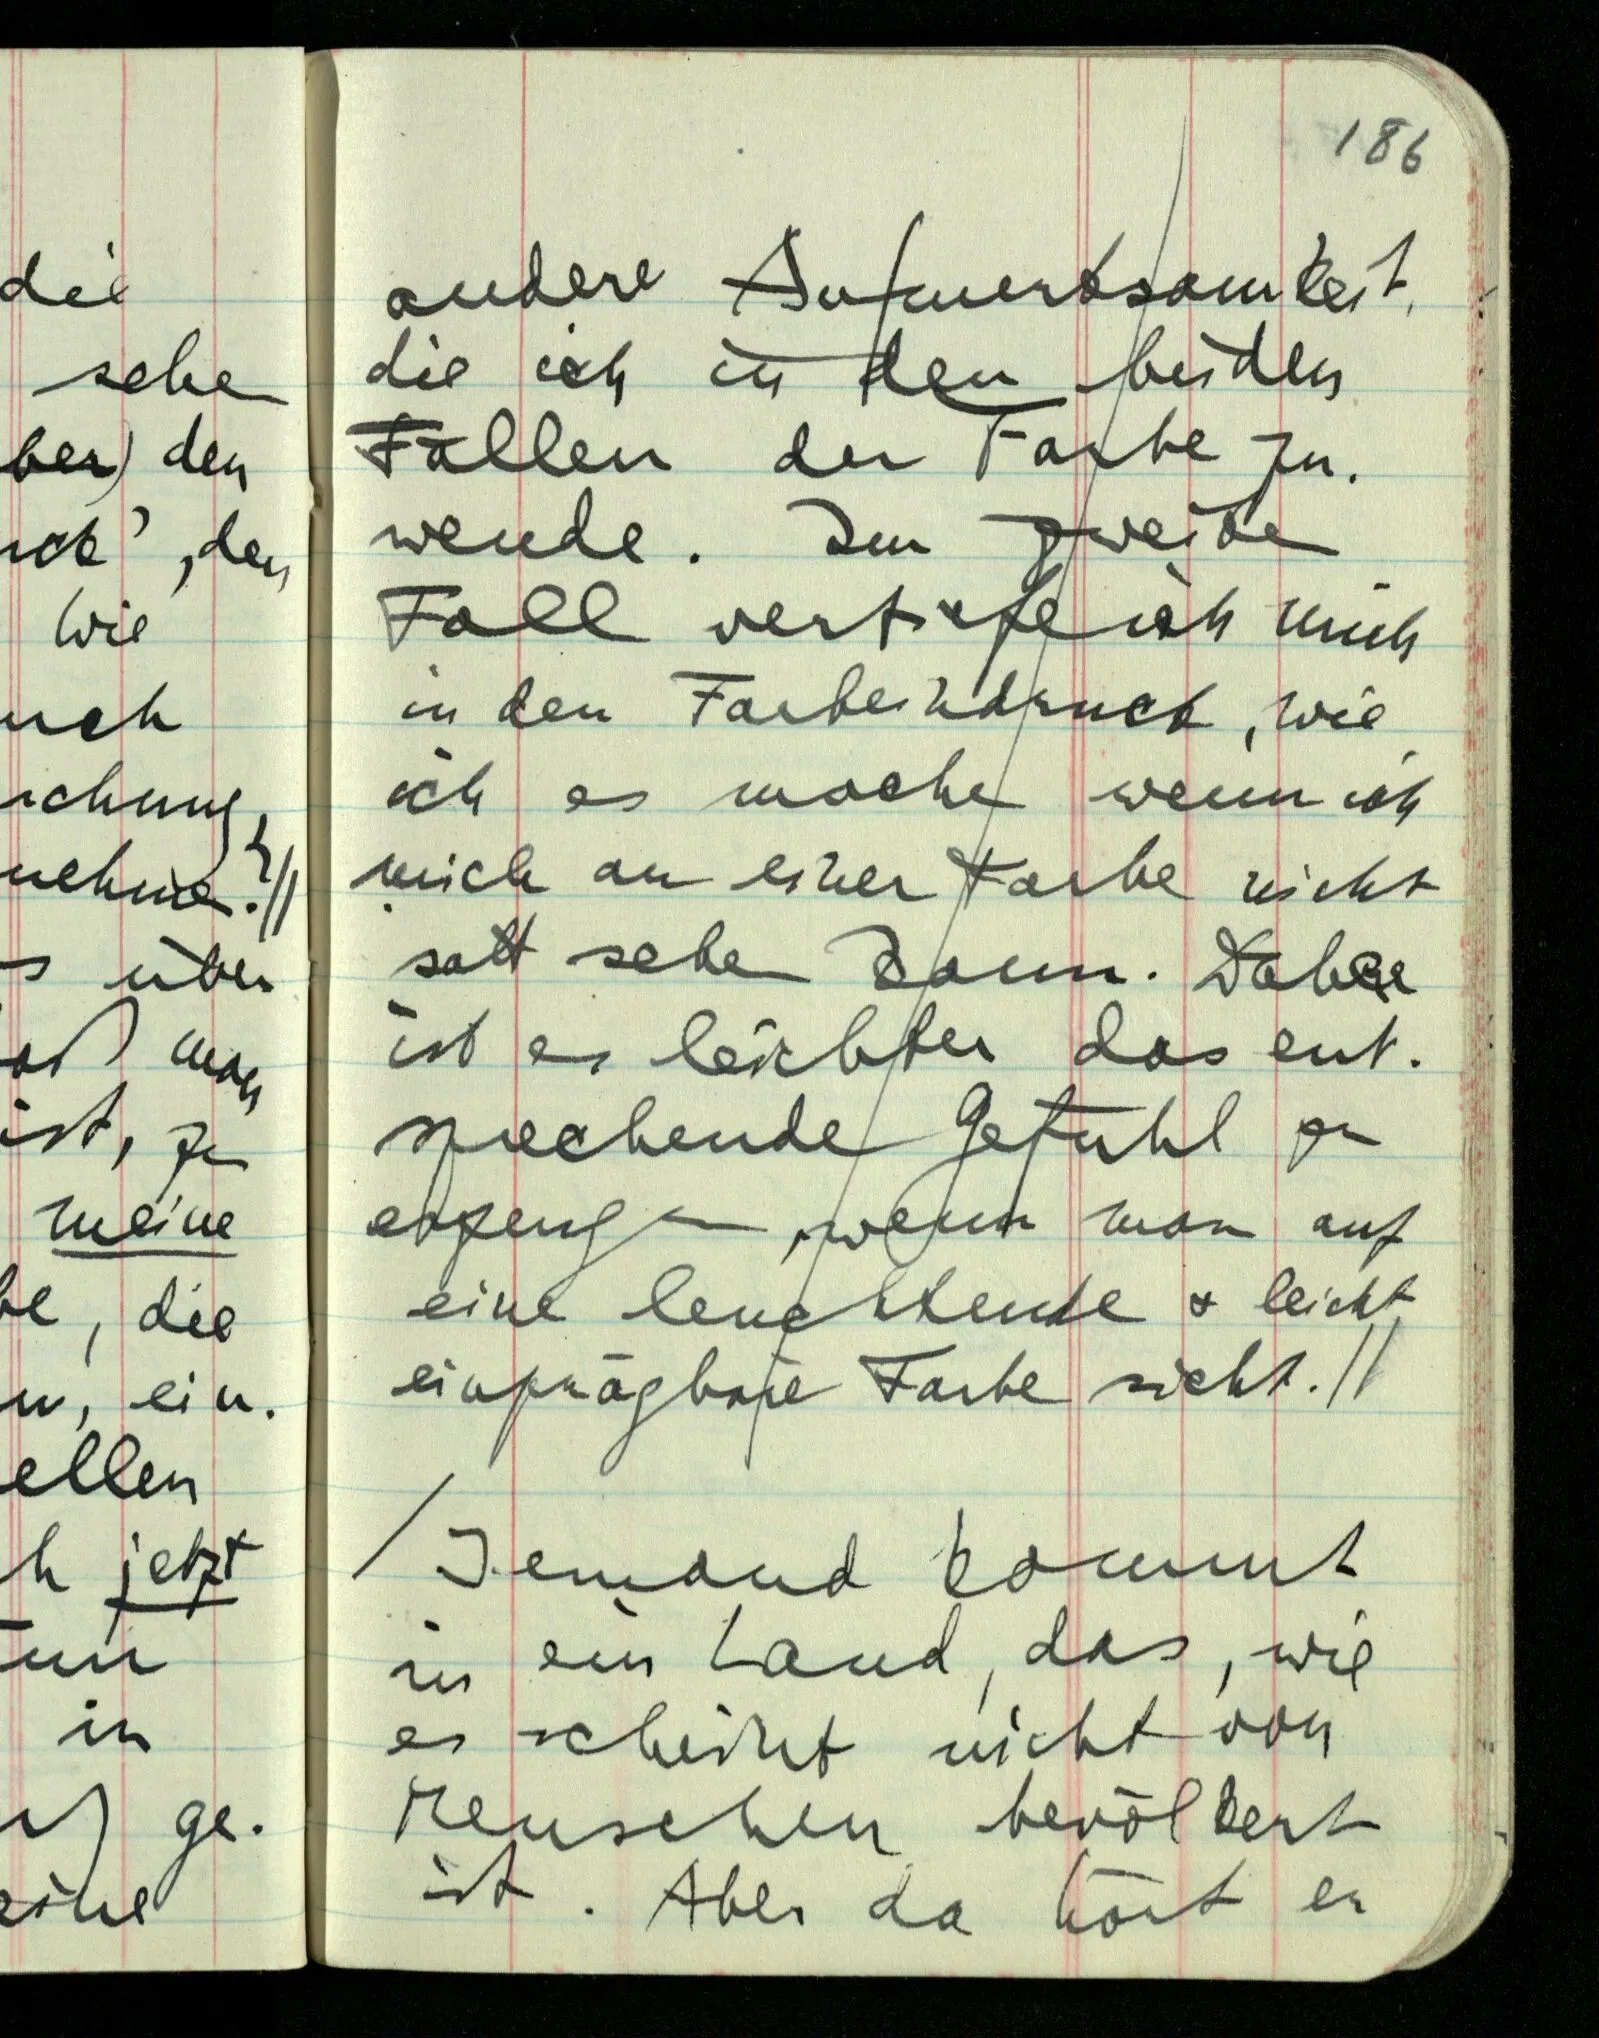 die
sehe
ber) den
uck', den
wie
uch
schung,
nehme.?//
s über
daß man
ist, zu
meine
be, die
n, ein-
ellen
h jetzt
in
ge-
eine
186
andere Aufmerksamkeit,
die ich in den beiden
Fällen der Farbe zu-
wende. Im zweiten
Fall vertiefe ich mich
in den Farbeindruck, wie
ich es mache wenn ich
mich an einer Farbe nicht
satt sehen kann. Daher
ist es leichter das ent-
sprechende Gefühl zu
erzeugen, wenn man auf
eine leuchtende & leicht
einprägbare Farbe sieht.//
/Jemand kommt
in ein Land, das, wie
es scheint nicht von
Menschen bevölkert
ist. Aber da hört er